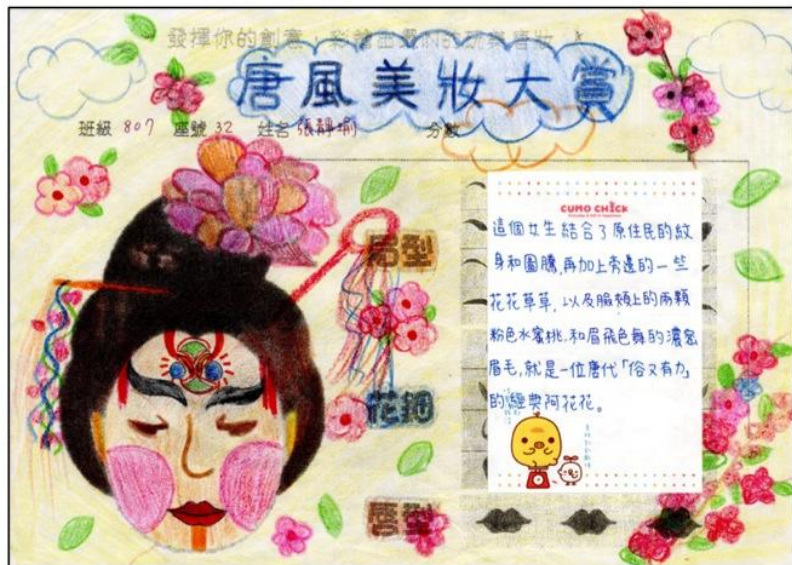 發揮你的創意,彩繪出最in的玩美唐妝
唐風美妝大賞
班級 807 座號 32 姓名 張靜瑜 分數
眉型
花鈿
唇型
CUMO CHICK
這個女生結合了原住民的紋
身和圖騰,再加上旁邊的一些
花花草草,以及臉頰上的兩顆
粉色水蜜桃,和眉飛色舞的濃密
眉毛,就是一位唐代「俗又有力」
的經典阿花花。